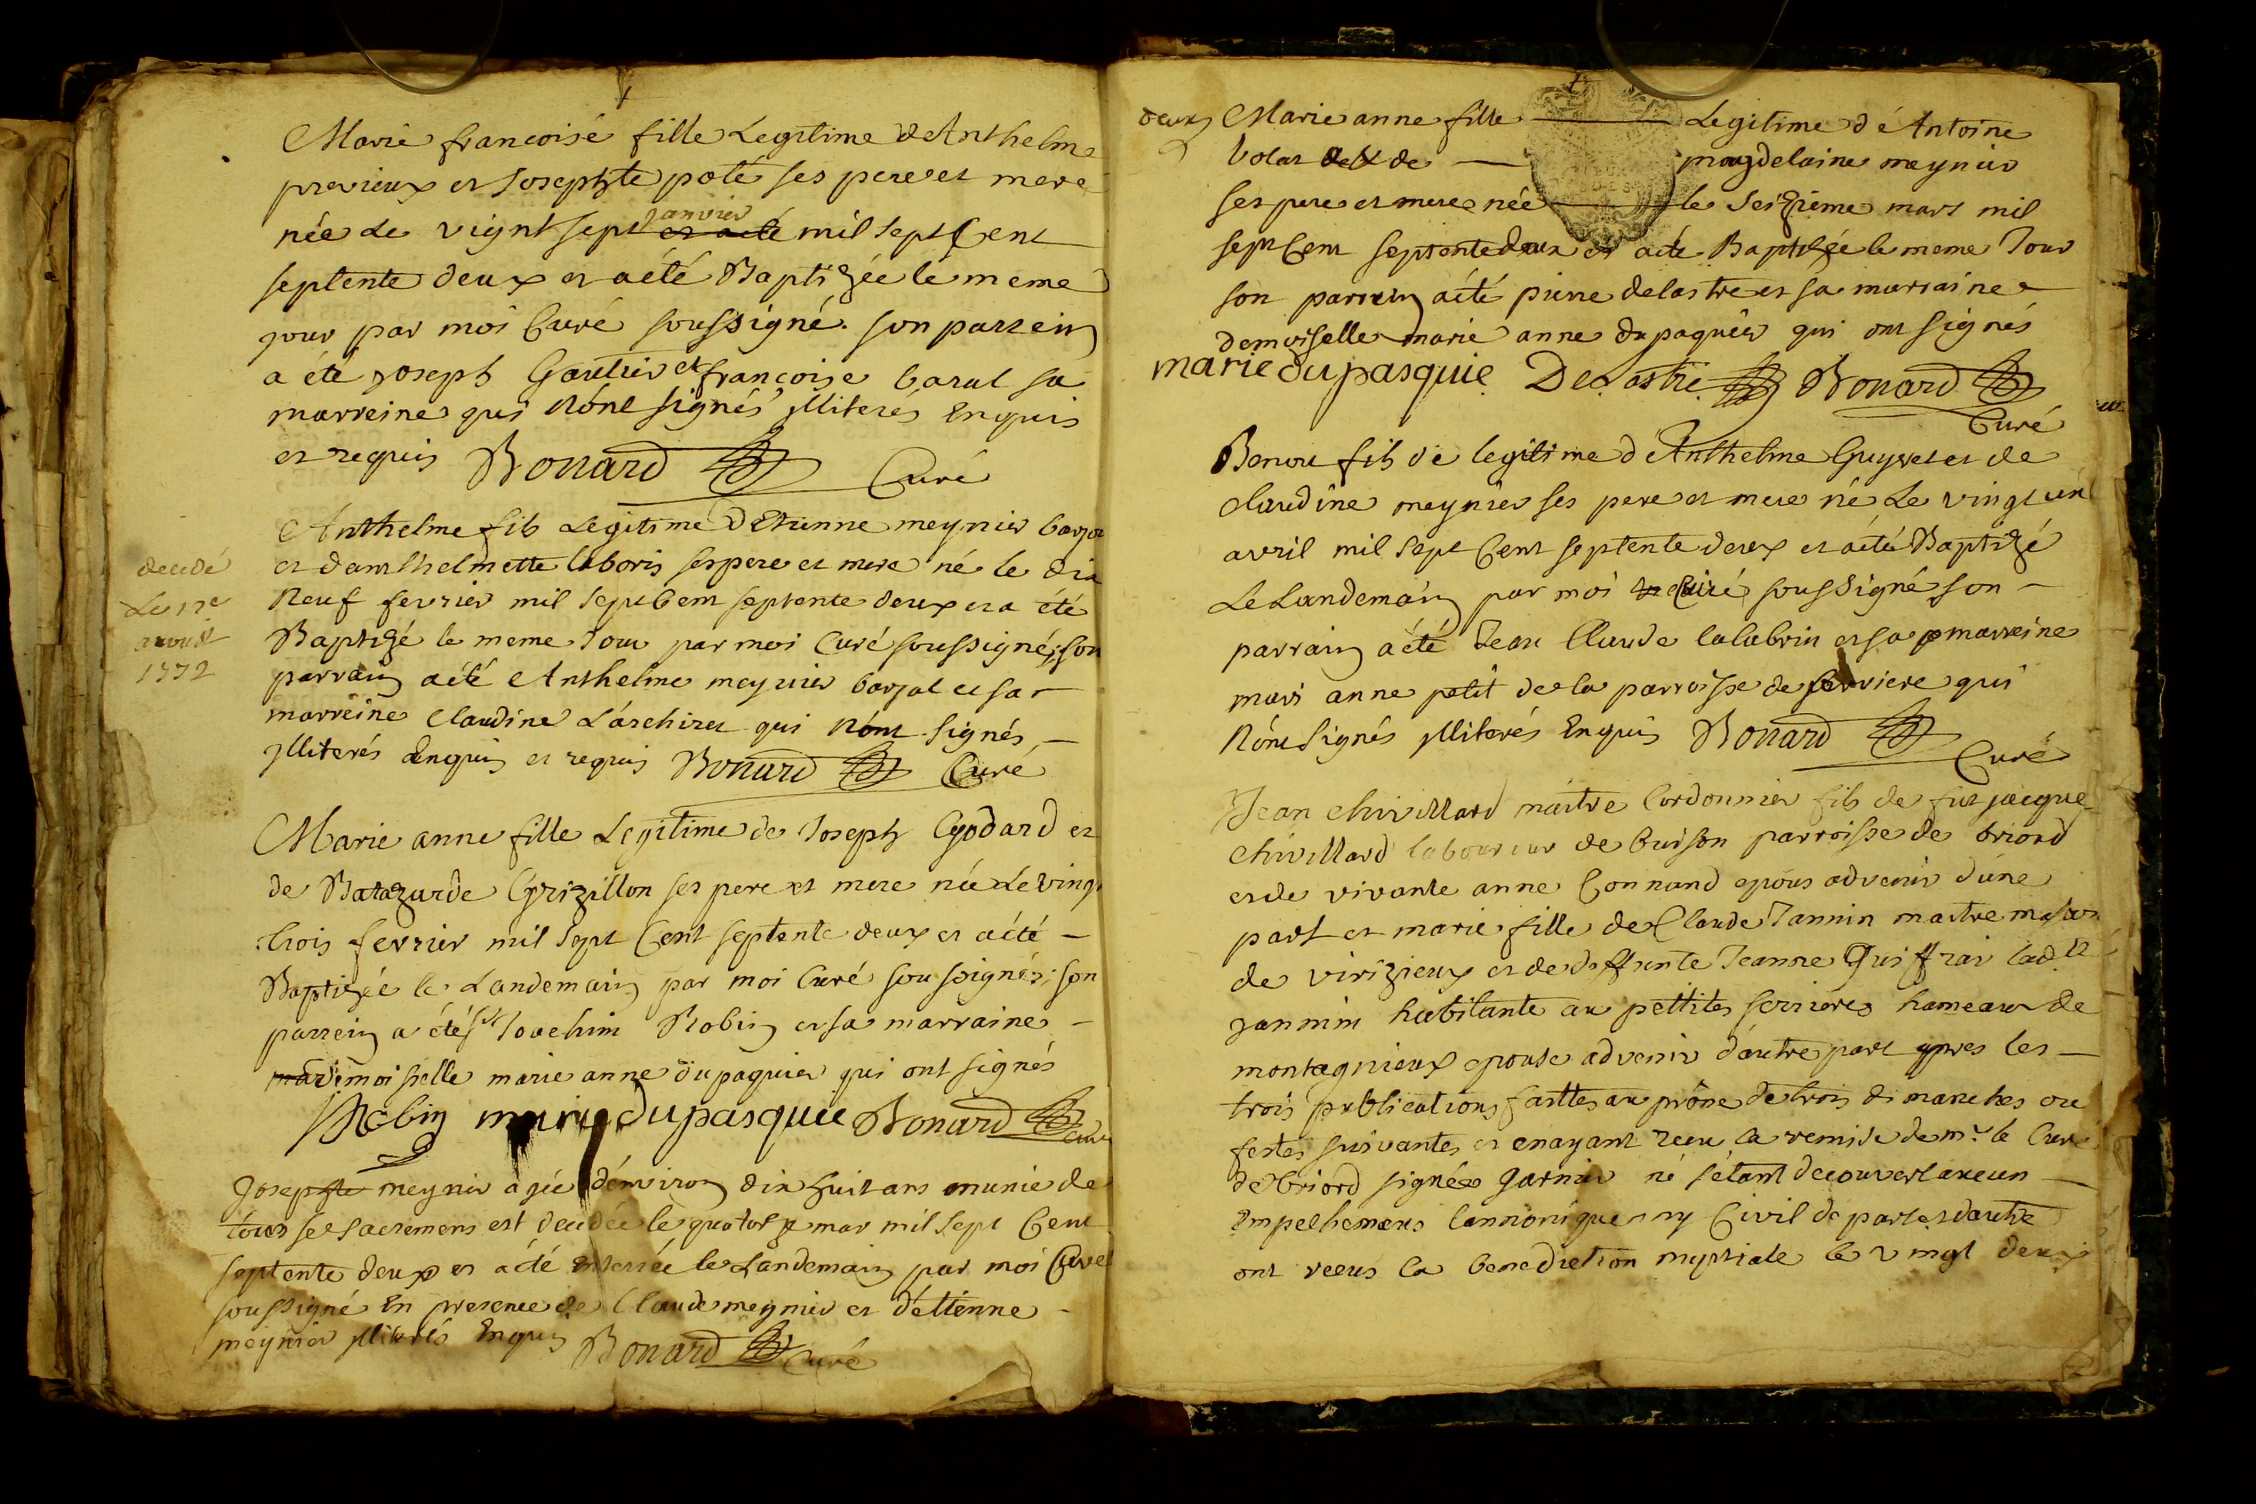 Marie francoise fille Legitime d'Anthelme
previeux et Josephte poté ses pere et mere
née Le vignt sept janvier et a été mil sept Cent
septente deux et a été Baptizée le meme
jour par moi Curé soussigné. son parrein
a été joseph Gautier et françoise barat sa
marreine qui n'ont signés illiterés Enquis
et requis Bonard Curé
Anthelme fils Legitime d'Etienne meynier barjot
et d'anthelmette laboris ses pere et mere né le dix
decedé
Neuf fevrier mil sept Cent septente deux et a été
Le 17e
Baptizé le meme Jour par moi Curé soussigné, son
auoust
1772
parrain a été Anthelme meynier barjat et sa
marreine Claudine L'archiret qui n'ont signés
illiterés Enquis et requis Bonard Curé
Marie anne fille Legitime de Joseph Godard et
de Batazarde Grizillon ses pere et mere née Le vingt
trois fevrier mil sept Cent septente deux et a été
Baptizée le Landemain par moi Curé soussigné; son
parrein a été sr Joachim Robin et sa marraine
demoiselle marie anne dupaquier qui ont signés
Robin marie dupasquie Bonard Curé
Josephte meynier agée d'environ dix huit ans munie de
tous ses sacremens est decedée le quatorze mar mil sept Cent
septente deux et a été enterrée le Landemain par moi Curé
soussigné En presence de Claude meynier et d'etienne
meynier illiterés Enquis Bonard Curé
deux Marie anne fille Legitime de Antoine
bolat de magdelaine meynier
ses pere et mere née le seizieme mars mil
sept Cent septente deux et a été Baptizée le meme Jour
son parrein a été pierre delastre et sa marraine
demoiselle marie anne dupaquier qui ont signés
marie dupasquie Delastre Bonard
Curé
Benoit fils de legitime d'Anthelme Guyvet et de
Claudine meynier ses pere et mere né Le vingt un
avril mil sept Cent septente deux et a été Baptizé
Le Landemain par moi Curé soussigné son
parrain a été Jean Claude lalabrin et sa marreine
mari anne petit de la parroisse de serriere qui
n'ont signés illiterés Enquis Bonard
Curé
Jean chivillard maitre Cordonnier fils de fut jacque
chivillard laboureur de buison parroisse de briord
et de vivante anne Connand epoux advenir d'une
part et marie fille de Claude Jannin maitre masson
de virizieux et de deffunte Jeanne Guiffrai ladte
jannin habitante au pettites serrieres hameaux de
montagnieux epouse advenir d'autre part apres les
trois publications faittes au prône de trois dimanches ou
festes suivantes et en ayant receu la remise de mr. le Curé
de briord signée garnier né s'étant decouvert aucun
Empechemens Cannonique ny Civil de part et d'autre
ont receus la benediction nuptiale le vingt deux